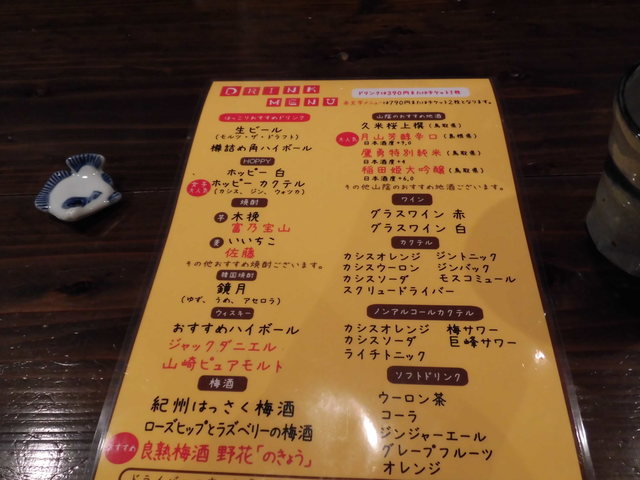 DRINK MENU
ドリンクは390円またはチケット1枚
※赤文字メニューは790円またはチケット2枚となります。
ほっこりおすすめドリンク
生ビール
(モルツ・ザ・ドラフト)
樽詰め角ハイボール
HOPPY
ホッピー 白
女子大人気
ホッピー カクテル
(カシス、ジン、ウォッカ)
焼酎
芋 木挽
富乃宝山
麦 いいちこ
佐藤
その他おすすめ焼酎ございます。
韓国焼酎
鏡月
(ゆず、うめ、アセロラ)
ウィスキー
おすすめハイボール
ジャックダニエル
山崎ピュアモルト
梅酒
紀州はっさく梅酒
ローズヒップとラズベリーの梅酒
おすすめ
良熟梅酒 野花「のきょう」
山陰のおすすめ地酒
久米桜上撰 (鳥取県)
大人気
月山芳醇辛口 (島根県)
日本酒度+9.0
鷹勇特別純米 (鳥取県)
日本酒度+4
稲田姫大吟醸 (鳥取県)
日本酒度+6.0
その他山陰のおすすめ地酒ございます。
ワイン
グラスワイン 赤
グラスワイン 白
カクテル
カシスオレンジ ジントニック
カシスウーロン ジンバック
カシスソーダ モスコミュール
スクリュードライバー
ノンアルコールカクテル
カシスオレンジ 梅サワー
カシスソーダ 巨峰サワー
ライチトニック
ソフトドリンク
ウーロン茶
コーラ
ジンジャーエール
グレープフルーツ
オレンジ